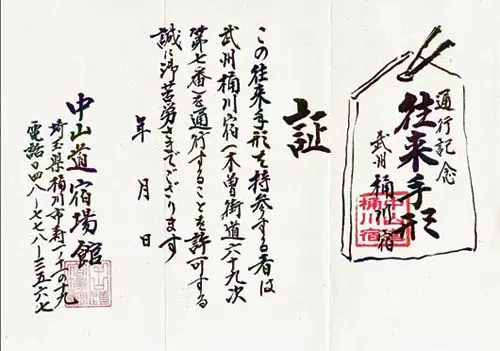 通行記念
往来手形
武州 桶川宿
中山道
桶川宿
証
この往来手形を持参する者は
武州桶川宿(木曽街道六十九次
第七番)を通行することを許可する
誠に御苦労さまでござります
年 月 日
中山道宿場館
埼玉県桶川市寿一ノ十一の十九
電話〇四八-七七八-三五六七